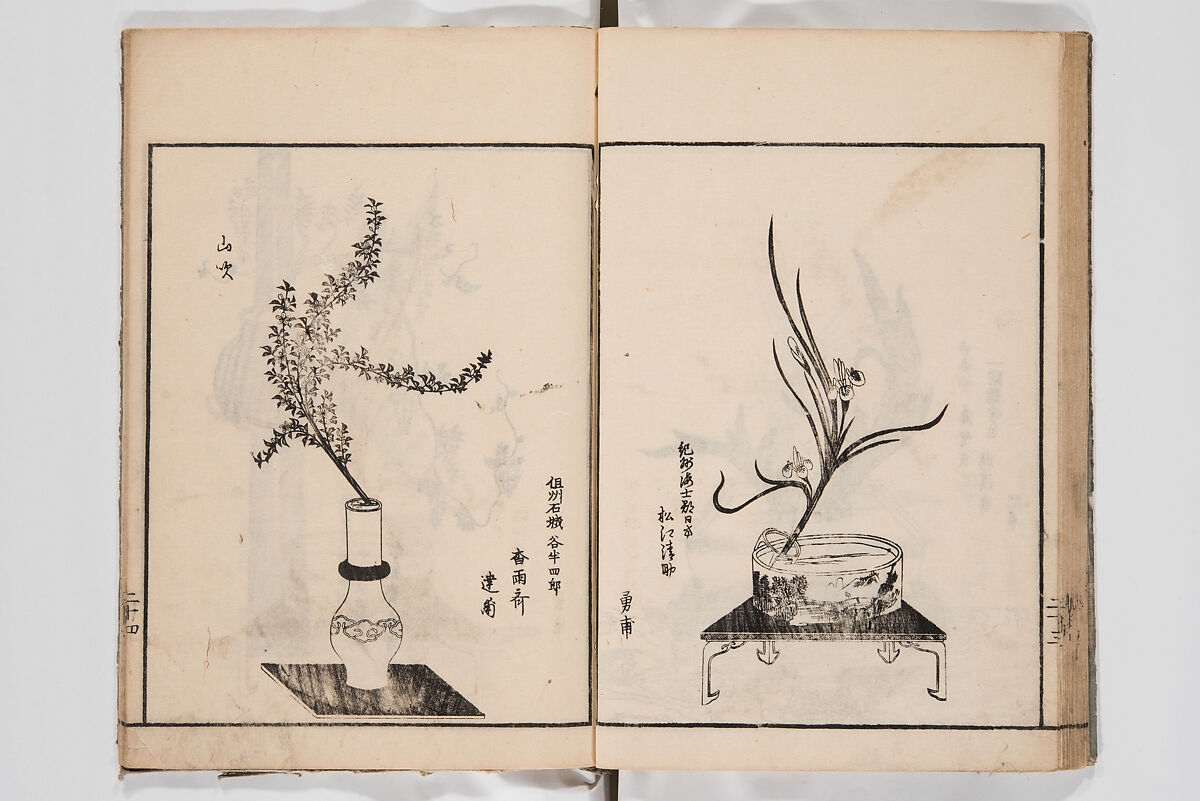 紀州海士郡日方
松江清助
勇甫
二十三
山吹
但州石城 谷半四郎
杳雨斎
建甫
二十四